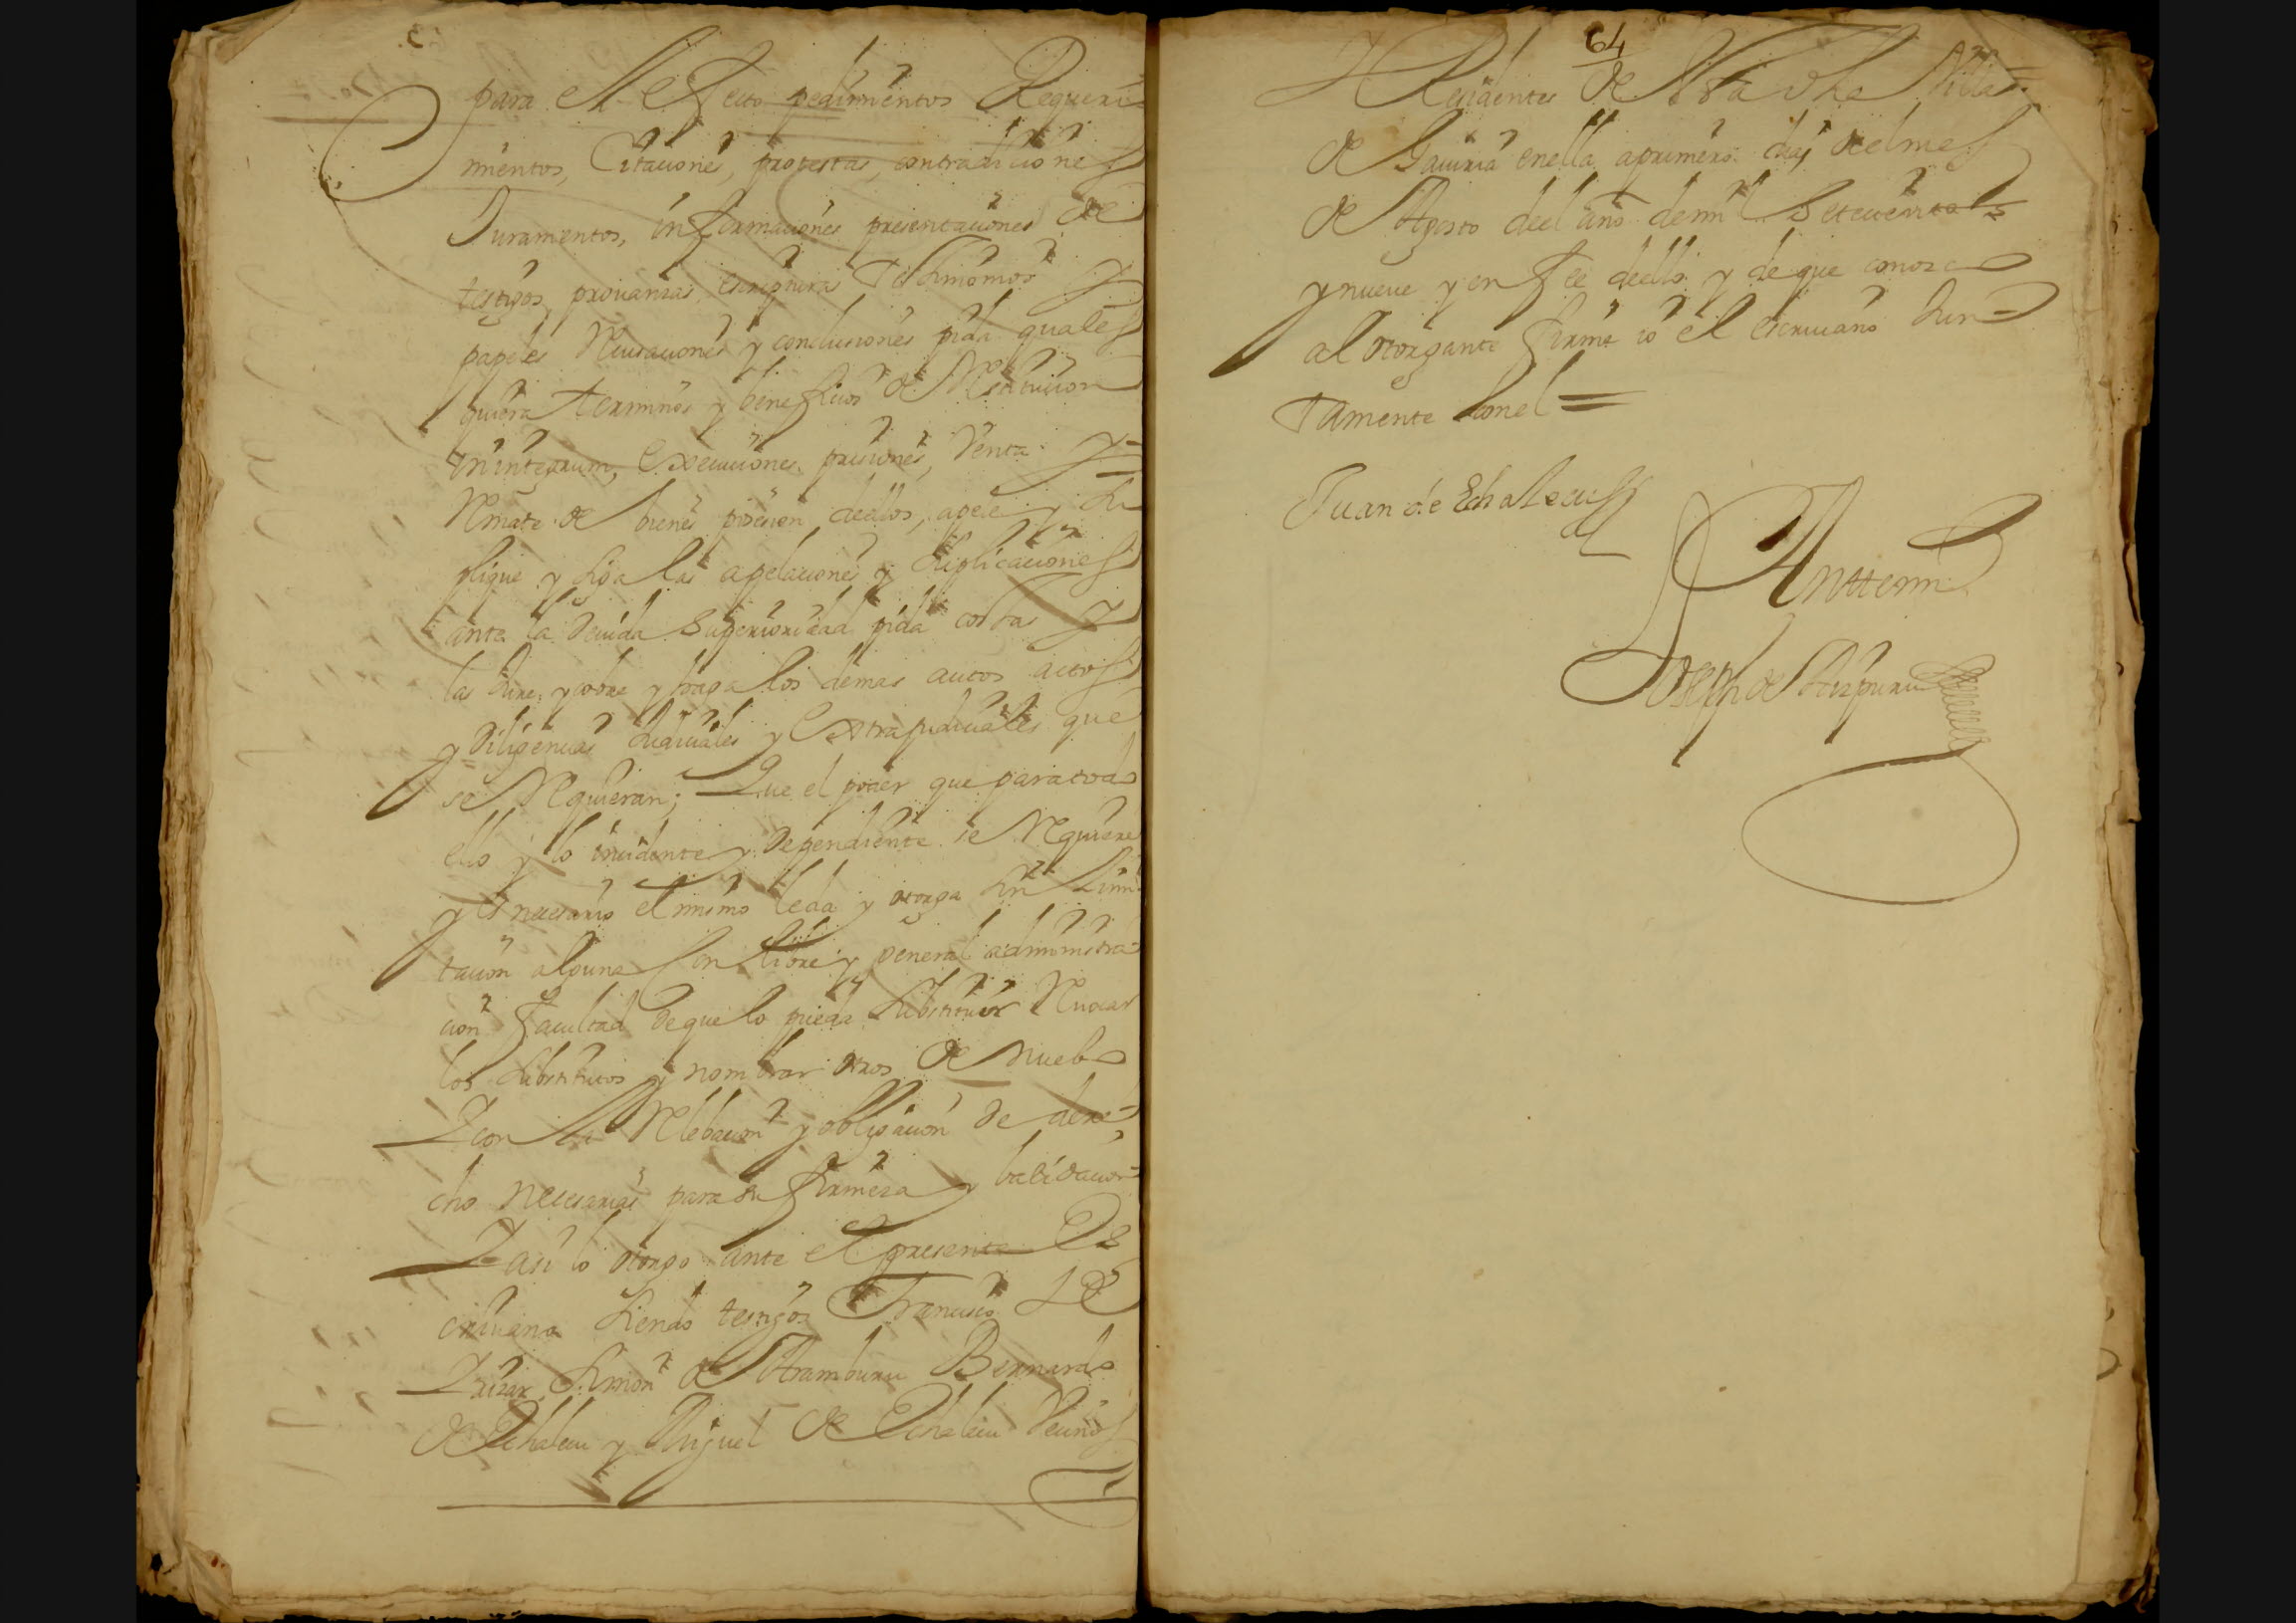 para el efecto pedimientos Requeri
mientos, Citaciones, protestas, contradiciones
Juramentos, informaciones presentaciones de
testigos, prouanzas, escripturas testimonios y
papeles Recusaciones y conclusiones pida quales
quiera terminos y beneficios de Restitucion
inintegrum, Execuciones, prisiones, Venta y
Remate de bienes posesion deellos, apele y su
plique y siga las apelaciones y suplicaciones
ante la deuida superioridad pida costas y
las Jure, y cobre y haga los demas autos actos
y diligencias Judiciales y extrajudiciales que
se Requieran; Que el poder que para todo
ello y lo incidente y dependiente se Requiere
y es necesario el mismo le da y otorga sin limi
tacion alguna con libre y general administra
cion facultad de que lo pueda substituir Reuocar
los substitutos y nombrar otros de nuebo
Y con la Relebacion y obligacion de dere
cho necesarias para su firmeza y balidacion
Y asi lo otorgo ante el presente Es
criuano siendo testigos Francisco de
Yrizar Simon de Aramburu Bernardo
de Echalecu y Miguel de Echalecu Vecinos
64
Y Residentes de esta dha Villa
de Gauiria en ella a primero dia del mes
de Agosto deel año de mil Setecientos
y nueue y en fee deello y de que conozco
al otorgante firme io el escriuano Jun
tamente con el =
Juan de Echalecu
Ante mi
Joseph de Aizpuru